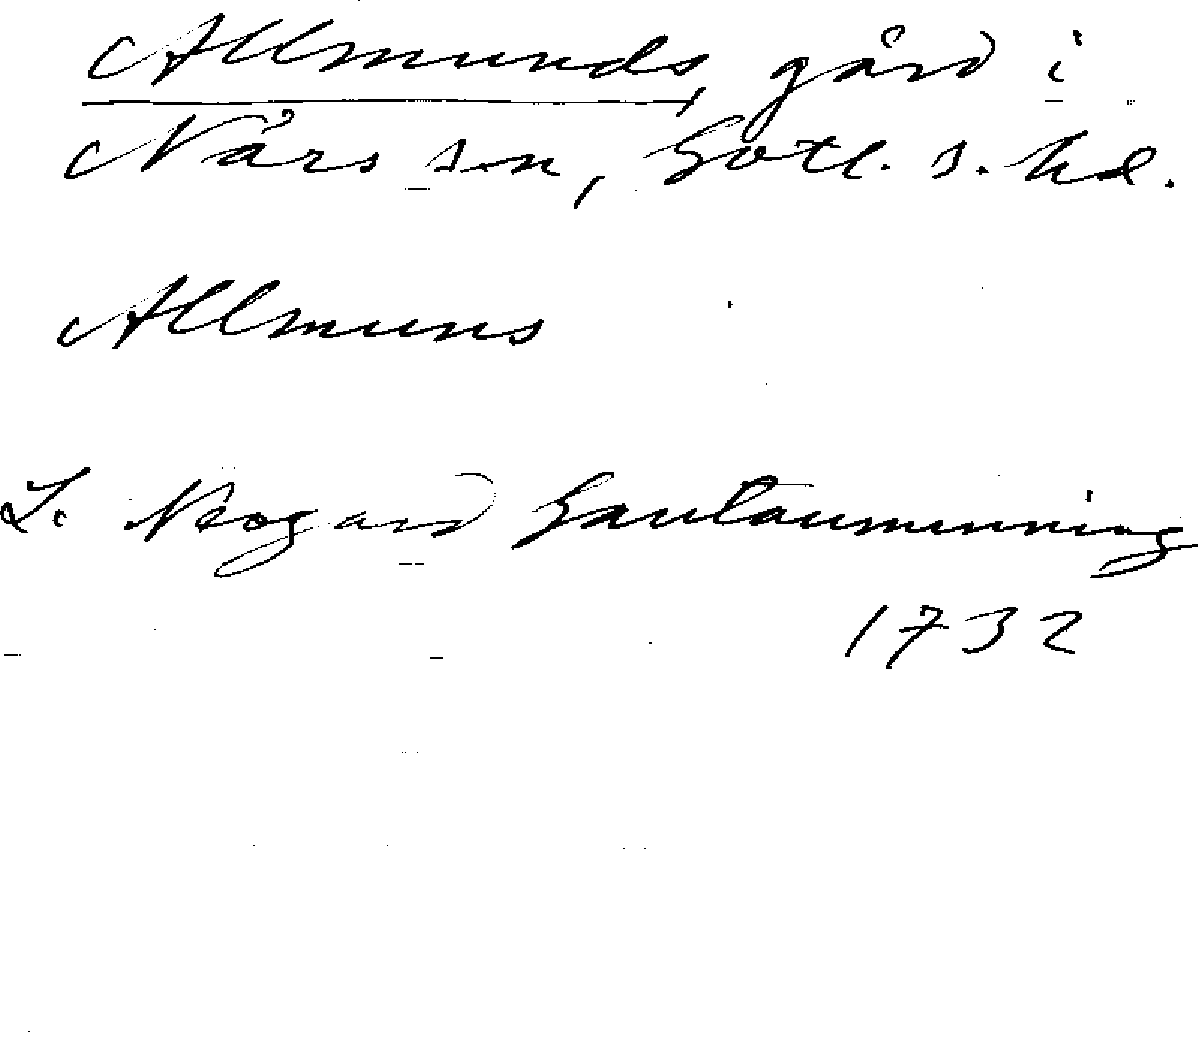 Allmunds, gård i
Närs sn, Gotl. s. hd.
Allmuns
L. Neogard Gautauminning
1732